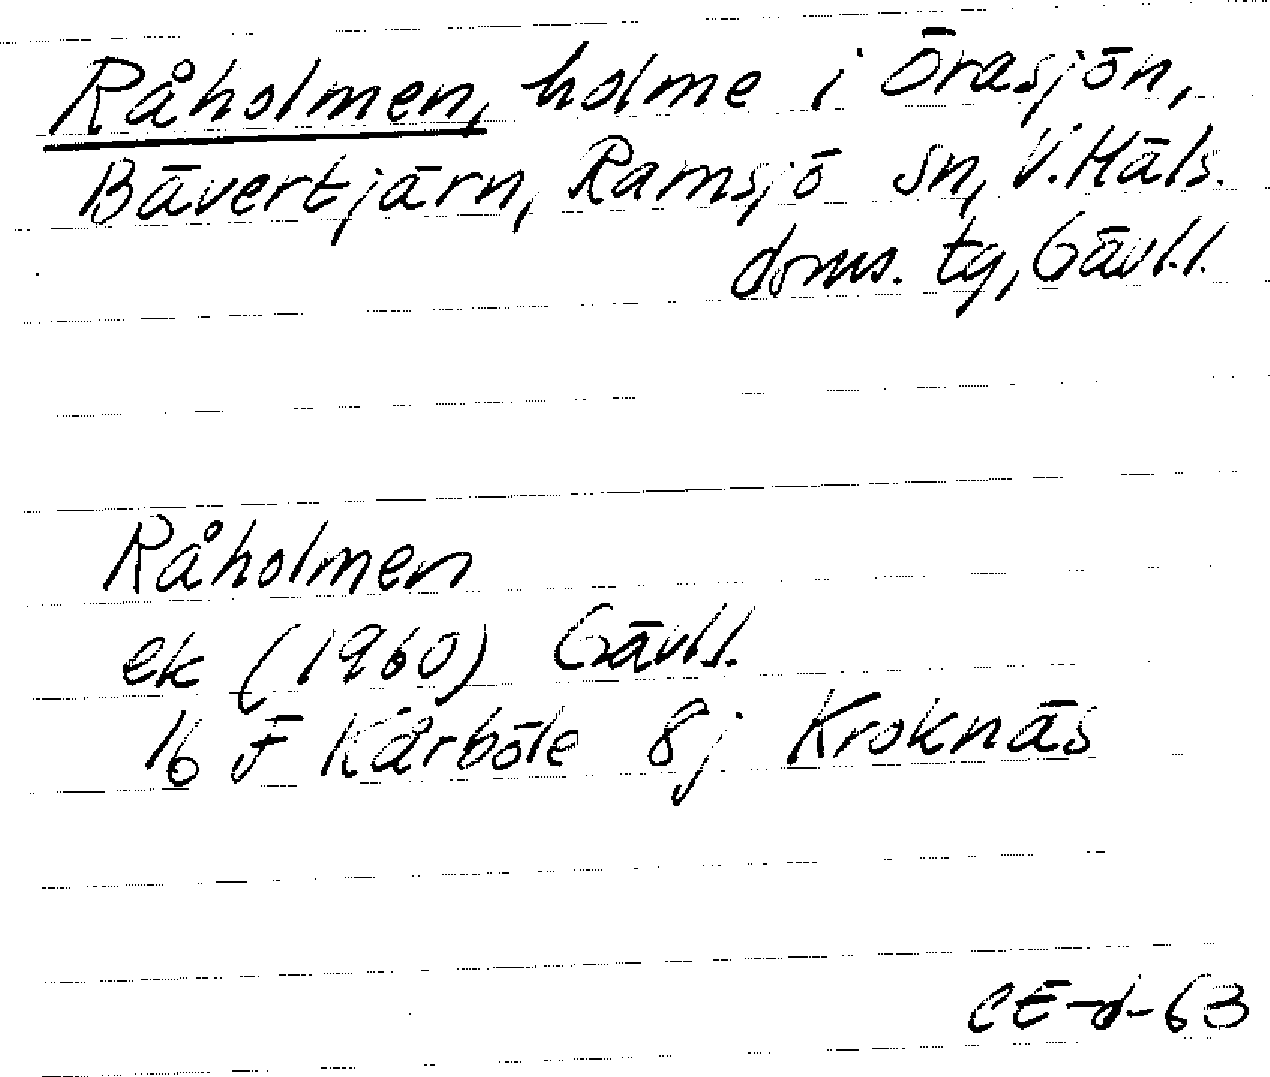 Råholmen, holme i Örasjön,
Bävertjärn, Ramsjö sn, V. Häls.
doms. tg, Gävl.l.
Råholmen
ek (1960) Gävl.l.
16 F Kårböle 8j Kroknäs
CE-d-63